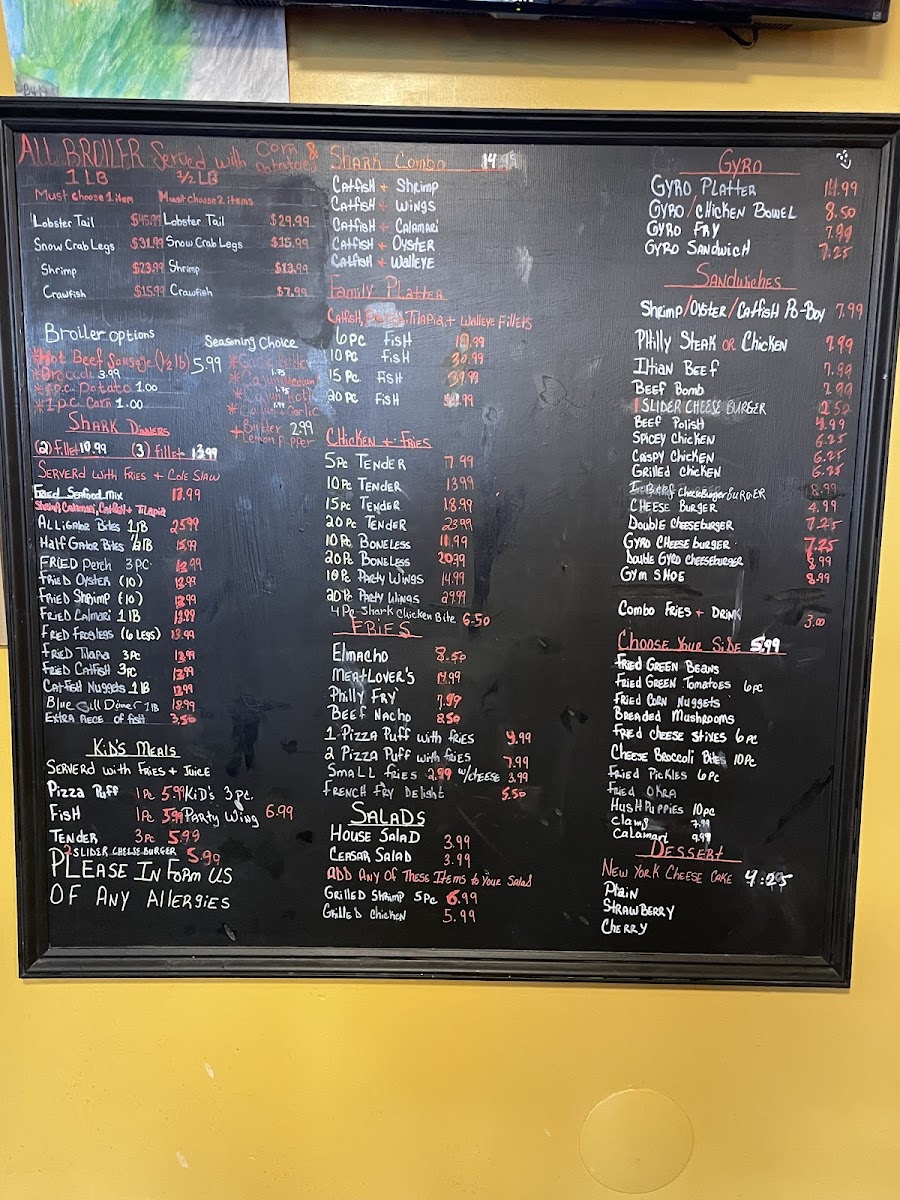 ALL BROILER Served with Corn & Potatoes
1 LB 1/2 LB
Must choose 1 item Must choose 2 items
Lobster Tail $45.99 Lobster Tail $29.99
Snow Crab Legs $31.99 Snow Crab Legs $15.99
Shrimp $23.99 Shrimp $13.99
Crawfish $15.99 Crawfish $7.99
Broiler options
Hot Beef Sausage (1/2 lb) 5.99
*Broccoli 3.99
*1 pc. Potato 1.00
*1 pc. Corn 1.00
Seasoning Choice
* Garlic Butter
1.75
* Cajun Medium
1.75
* Cajun Hot
* Cajun Garlic
* Butter 2.99
Lemon Pepper
SHARK DINNERS
(2) fillet 10.99 (3) fillet 13.99
SERVERd with FRIES + Cole SlAW
Fried Seafood Mix 17.99
Shrimp, Calamari, Catfish + Tilapia
ALLIGATOR BITES 1 lB 25.99
Half Gator Bites 1/2 lB 15.99
FRIED Perch 3 PC 13.99
FRIED OYSTER (10)
FRIED SHRIMP (10)
FRIED CALMARI 1 lB
FRIED FROGLEGS (6 LEGS) 13.99
FRIED Tilapia 3 Pc
FRIED CATFISH 3 PC
CATFISH NUGGETS 1 lB
Blue Gill Dinner 1 lB 18.99
EXTRA PIECE OF fISH 3.50
KiD'S MEALS
SERVERd with FRIES + JUICE
Pizza Puff 1 Pc 5.99 KiD's 3 pc.
FisH 1 Pc 5.99 Party Wing 6.99
TENDER 3 PC 5.99
2 SLIDER CHEESE BURGER 5.99
PLEASE IN FORM US
OF ANY ALLERGIES
Shark Combo 14.95
CATFISH + SHRIMP
CATFISH + WINGS
CATFISH + CALAMARI
CATFISH + OYSTER
CATFISH + WALLEYE
Family PLATTER
Catfish, Tilapia, + Walleye Fillets
6 pc FISH
10 PC FISH 30.99
15 Pc FISH 39.99
20 PC FISH
CHICKEN + FRIES
5 Pc TENDER 7.99
10 Pc TENDER 13.99
15 Pc TENDER 18.99
20 Pc TENDER 23.99
10 Pc BONELESS 11.99
20 Pc BONELESS 20.99
10 Pc PARTY WINGS 14.99
20 Pc PARTY WINGS 27.99
4 Pc Shark Chicken Bite 6.50
FRIES
ELmacho 8.50
MEATLOVER'S 11.99
Philly FRY 7.99
BEEF NACHO 8.50
1-PIZZA PUFF with fries 4.99
2 PIZZA PUFF with fries 7.99
SMALL fRIES 2.99 w/CHEESE 3.99
FRENCH FRY DELIGHT 5.50
SALADS
HOUSE SALAD 3.99
CEASAR SALAD 3.99
ADD ANY OF THESE ITEMS to YOUR SALAD
GRILLED SHRIMP 5 Pc 6.99
GRILLED CHICKEN 5.99
GYRO
GYRO PLATTER 11.99
GYRO/CHICKEN BOWEL 8.50
GYRO FRY 7.99
GYRO SANDWICH 7.25
SANDWICHES
SHRIMP/OYSTER/CATFISH PO-BOY 7.99
PHILLY STEAK OR CHICKEN 7.99
ITLIAN BEEF 7.99
BEEF BOMB 7.99
1 SLIDER CHEESE BURGER 2.50
BEEF POLISH 4.99
SPICEY CHICKEN 6.25
CRISPY CHICKEN 6.25
GRILLED CHICKEN 6.25
CHEESEBURGER BURGER 8.99
CHEESE BURGER 4.99
DOUBLE CHEESEBURGER 7.25
GYRO CHEESE BURGER 7.25
DOUBLE GYRO CHEESEBURGER 8.99
GYM SHOE 8.99
COMBO FRIES + DRINK 3.00
CHOOSE YOUR SIDE 5.99
FRIED GREEN BEANS
FRIED GREEN TOMATOES 6 pc
FRIED CORN NUGGETS
BREADED MUSHROOMS
FRIED CHEESE STIXES 6 PC
CHEESE BROCCOLI BITES 10 PC
FRIED PICKLES 6 Pc
FRIED OKRA
HUSH PUPPIES 10 pc
Clams 7.99
Calamari 9.99
DESSERT
NEW YORK CHEESE CAKE 4.25
Plain
STRAWBERRY
CHERRY